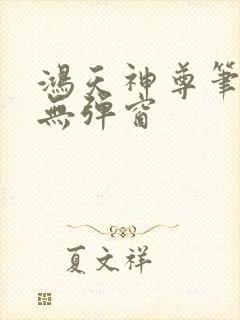 鴻天神尊筆
無彈窗
夏文祥